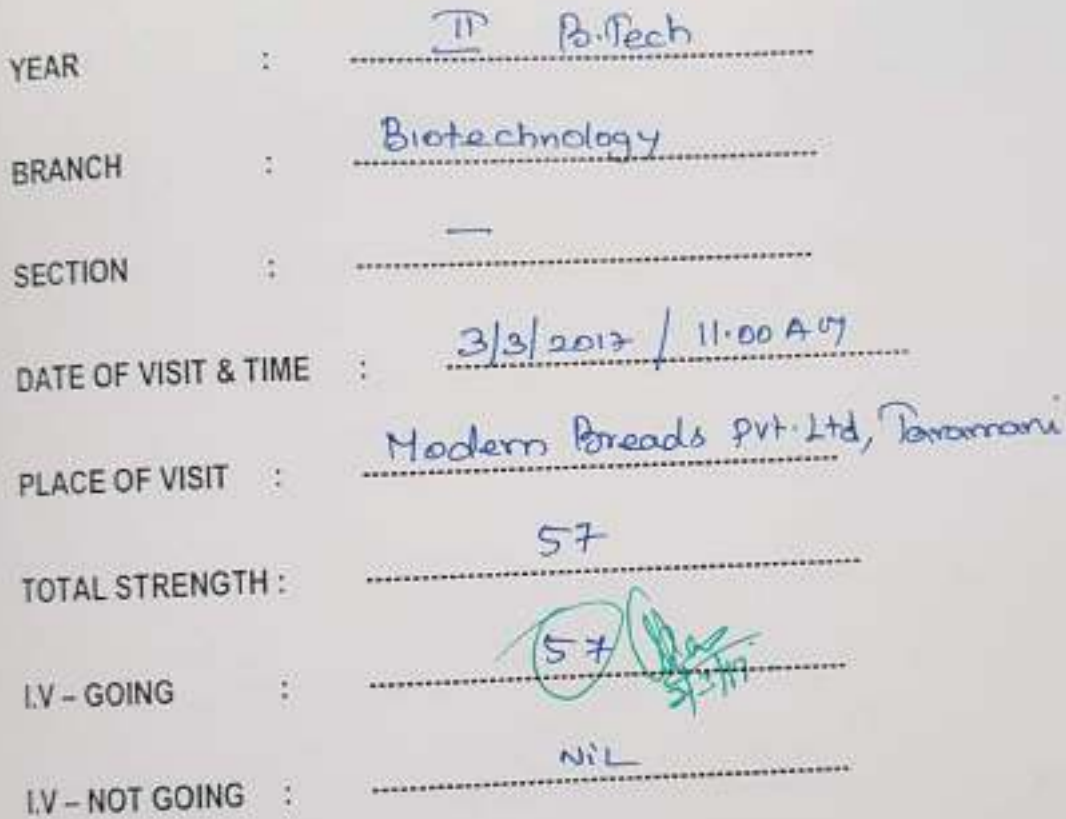 YEAR : II B.Tech
BRANCH : Biotechnology
SECTION : —
DATE OF VISIT & TIME : 3/3/2017 / 11.00 AM
PLACE OF VISIT : Modern Breads Pvt. Ltd, Taramani
TOTAL STRENGTH : 57
I.V – GOING : 57
I.V – NOT GOING : NiL